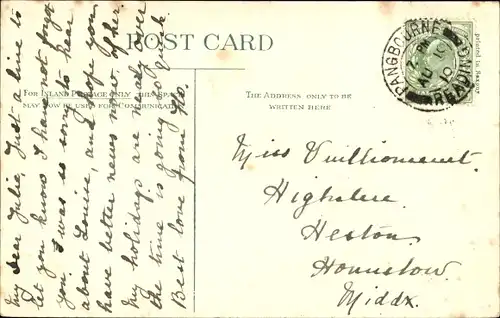 POST CARD
FOR INLAND POSTAGE ONLY THIS SPACE
MAY NOW BE USED FOR COMMUNICATION
THE ADDRESS ONLY TO BE
WRITTEN HERE
PANGBOURNE
READING
AU 10
10
Printed in Saxony
My dear Julie, Just a line to
let you know I have not forgot
you. I was so sorry to hear
about Louise, and I hope you
have better news now of her.
My holidays are nearly over
the time is going so quick
Best love from
Miss Vuilliomenet
Heston.
Hounslow.
Middx.